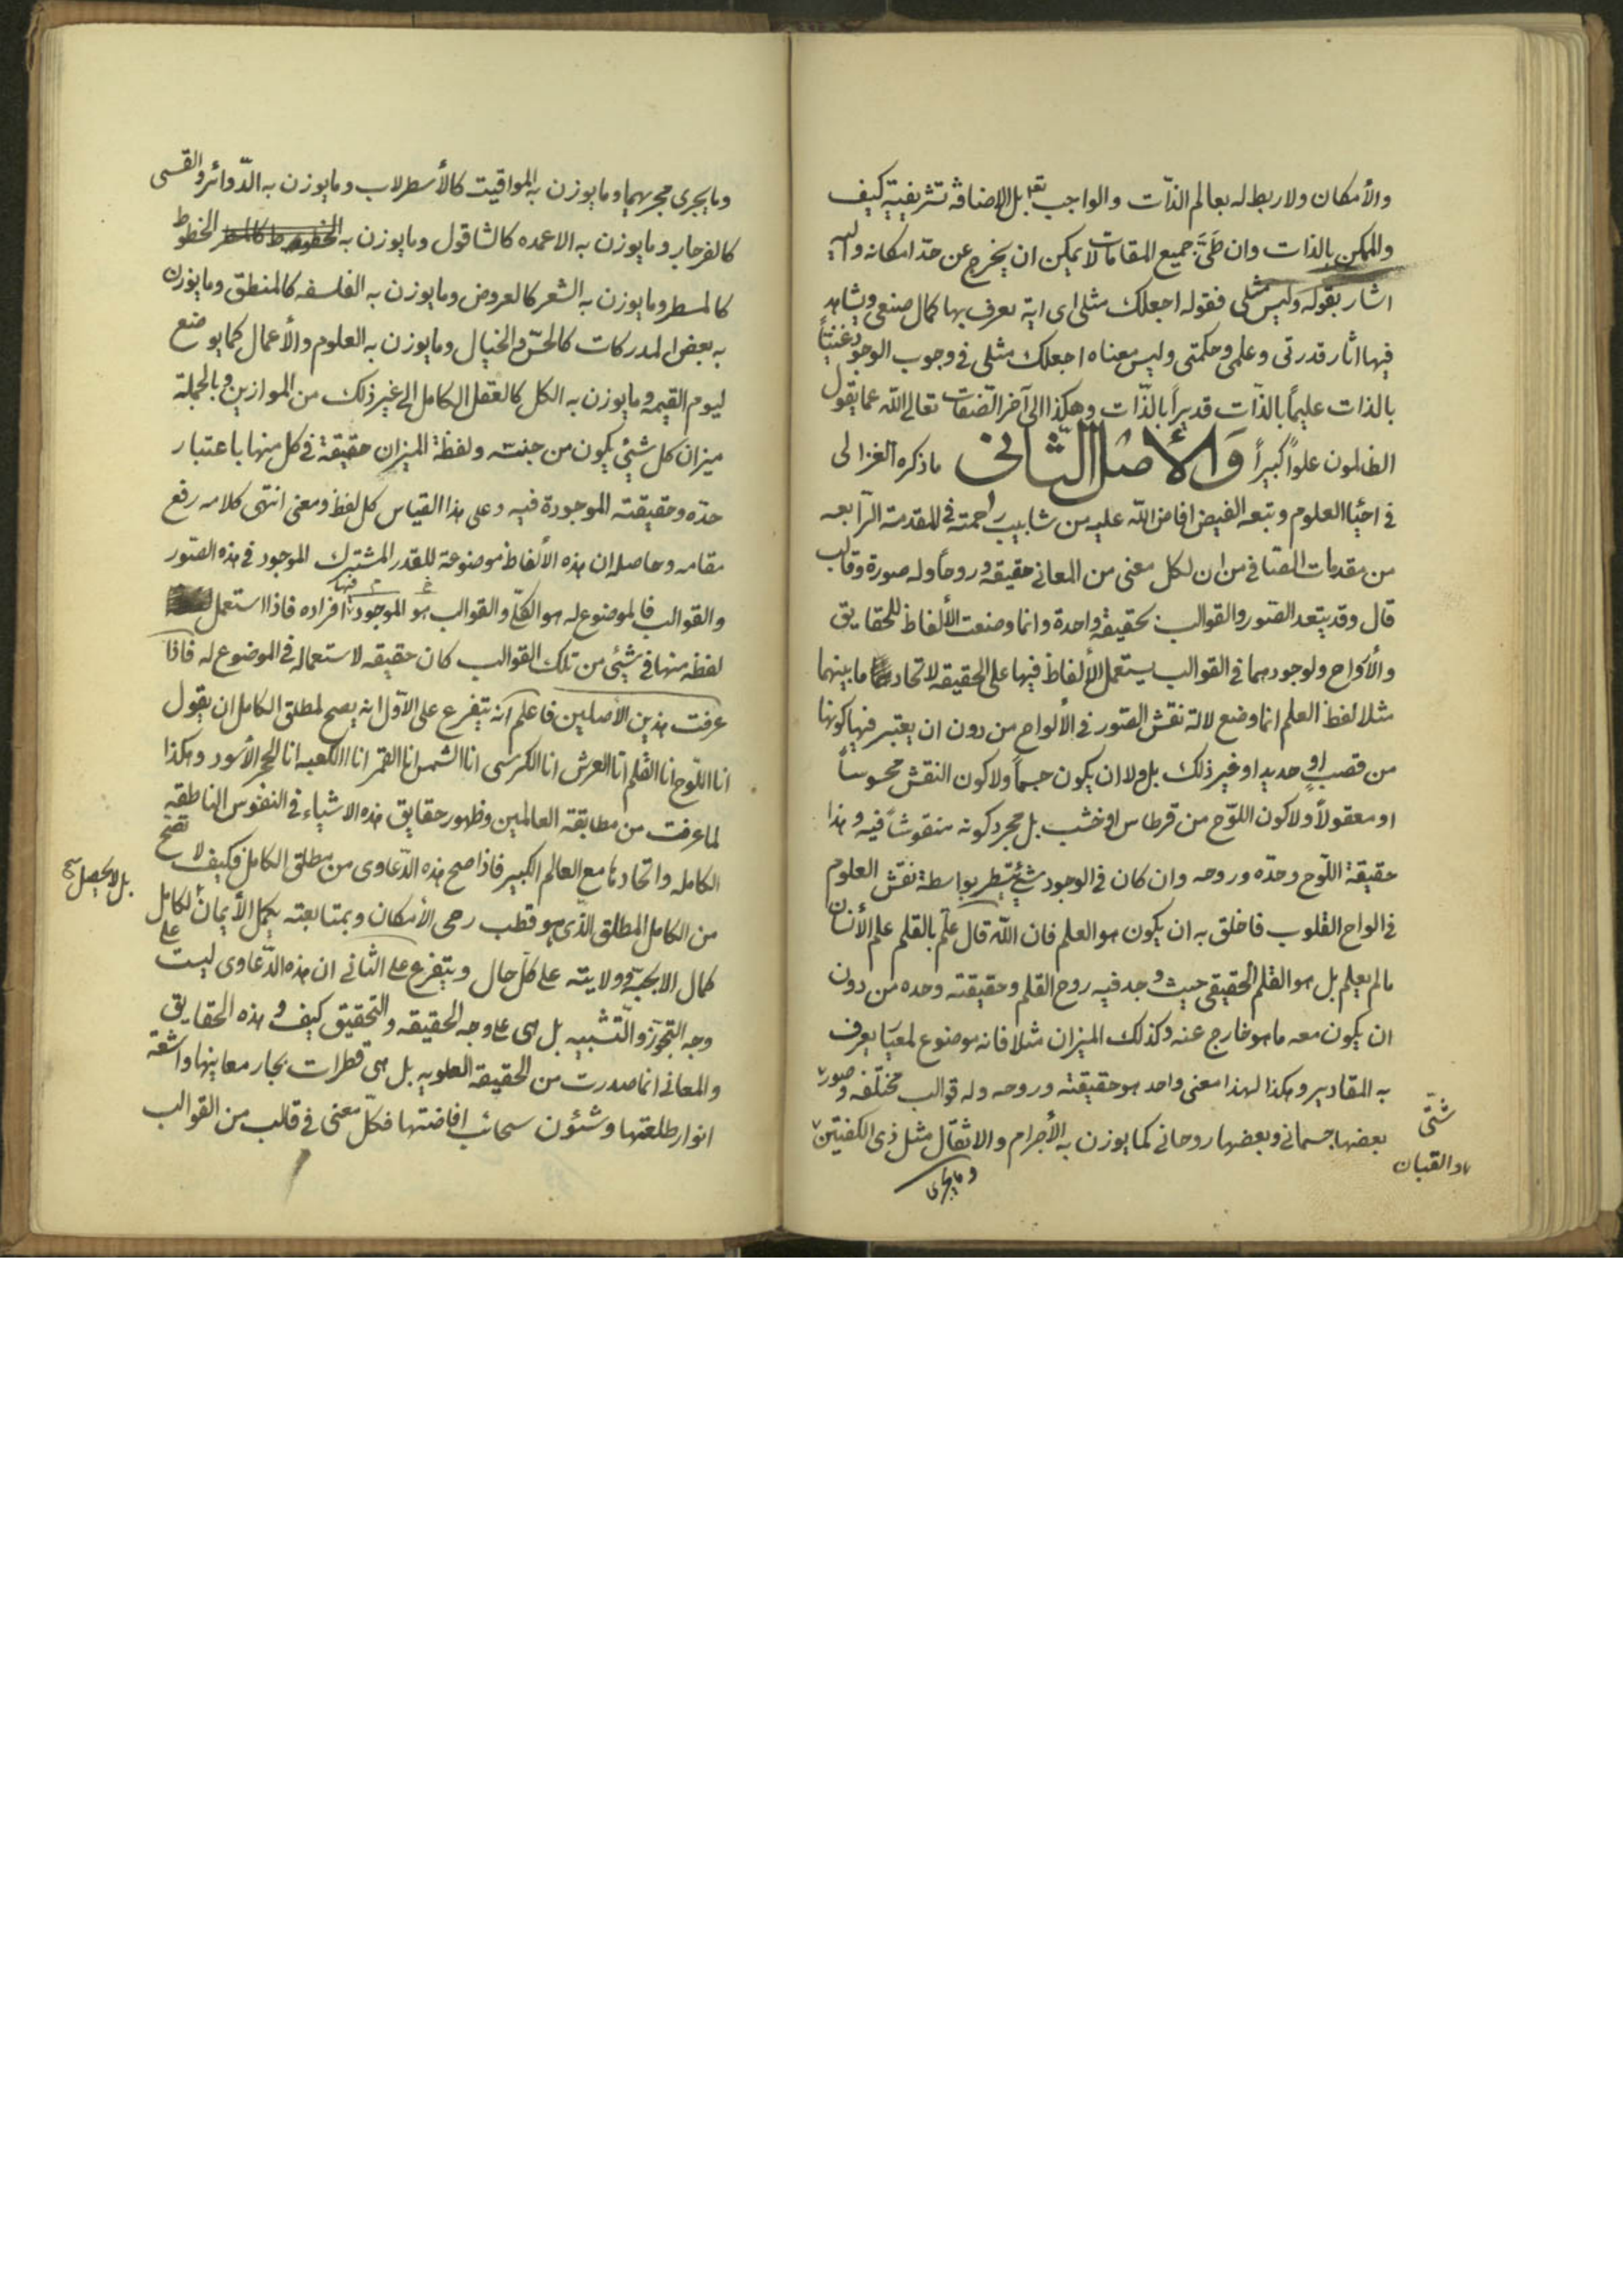 والأمكان ولا ربط له بعالم الذّات والواجب تعا بل الإضافة تشريفية كيف
والممكن بالذات وان طَىَّ جميع المقامات لا يمكن ان يخرج عن حدّ امكانه واليه
اشار بقوله وليس مثلى فقوله اجعلك مثلى اى اية يعرف بها كمال صنعى ويشاهد
فيها اثار قدرتى وعلمى وحكمتى وليس معناه اجعلك مثلى فى وجوب الوجود غنيّاً
بالذات عليماً بالذّات قديراً بالذّات وهكذا الى آخر الصّفات تعالى الله عما يقول
الظالمون علواً كبيراً وَالأصْلُ الثّانى ما ذكره الغزالى
فى احيٰا العلوم وتبعه الفيض افاض الله عليه من شابيب رحمته فى المقدمة الرّابعه
من مقدمات الصّافى من ان لكل معنى من المعانى حقيقة وروحاً وله صورة وقالب
قال وقد يتعد الصّور والقوالب بحقيقة واحدة وانما وضعت الألفاظ للحقايق
والأرواح ولوجودهما فى القوالب يستعمل الألفاظ فيها على الحقيقه لاتحاد ما بينهما
مثلا لفظ العلم انما وضع لالة نقش الصّور فى الألواح من دون ان يعتبر فيها كونها
من قصب او حديد او غير ذلك بل ولا ان يكون جسماً ولا كون النقش محسوساً
او معقولاً ولا كون اللّوح من قرطاس او خشب بل مجرد كونه منقوشاً فيه وهذا
حقيقة اللّوح وحدّه وروحه وان كان فى الوجود شئ يسّطر بواسطة نقش العلوم
فى الواح القلوب فاخلق به ان يكون هو العلم فان الله قال علّم بالقلم علم الأنسان
مالم يعلم بل هو القلم الحقيقى حيث وجد فيه روح القلم وحقيقته وحده من دون
ان يكون معه ما هو خارج عنه وكذلك الميزان مثلا فانه موضوع لمعيَا يعرف
به المقادير وهكذا لهذا معنى واحد هو حقيقته وروحه وله قوالب مختلفه وصور
شتّى
بعضها جسمانى وبعضها روحانى كما يوزن به الأجرام والاثقال مثل ذى الكفتين
والقبان
وما يجرى
وما يجرى مجريهما وما يوزن به المواقيت كالأسطرلاب وما يوزن به الدّوائر والقسى
كالفرجار وما يوزن به الاعمده كالشاقول وما يوزن به الخطوط
كالمسطر وما يوزن به الشعر كالعروض وما يوزن به الفلسفه كالمنطق وما يوزن
به بعض المدركات كالحسّ والخيال وما يوزن به العلوم والأعمال كما يوضع
ليوم القيمه وما يوزن به الكل كالعقل الكامل الى غير ذلك من الموازين وبالجملة
ميزان كل شئ يكون من جنسه ولفظة الميزان حقيقة فى كل منها باعتبار
حدّه وحقيقته الموجودة فيه وعلى هذا القياس كل لفظ ومعنى انتهى كلامه رفع
مقامه وحاصله ان هذه الألفاظ موضوعة للقدر المشترك الموجود فى هذه الصّور
والقوالب فالموضوع له هو الكلّى والقوالب هو الموجود فيها افراده فاذا استعمل
لفظه منها فى شئ من تلك القوالب كان حقيقه لاستعماله فى الموضوع له فاذا
عرفت هذين الأصلين فاعلم انه يتفرع على الأوّل انه يصح لمطلق الكامل ان يقول
انا اللّوح انا القلم انا العرش انا الكرسى انا الشمس انا القمر انا الكعبه انا الحجر الأسود وهكذا
لما عرفت من مطابقة العالمين وظهور حقايق هذه الاشياء فى النفوس الناطقه
الكامله واتحادها مع العالم الكبير فاذا صح هذه الدّعاوى من مطلق الكامل فكيف لا تصّح
من الكامل المطلق الّذى هو قطب رحى الأمكان وبمتابعته يكمل الأيمان الكامل
بل لا يحصل
كمال الا بحبّه وولايته على كلّ حال ويتفرع على الثانى ان هذه الدّعاوى ليست على
وجه التجوّز والتّشبيه بل هى على وجه الحقيقه والتحقيق كيف وهذه الحقايق
والمعانى انما صدرت من الحقيقة العلويه بل هى قطرات بحار معاينها واشعّة
انوار طلعتها وشئون سحائب افاضتها فكلّ معنى فى قالب من القوالب